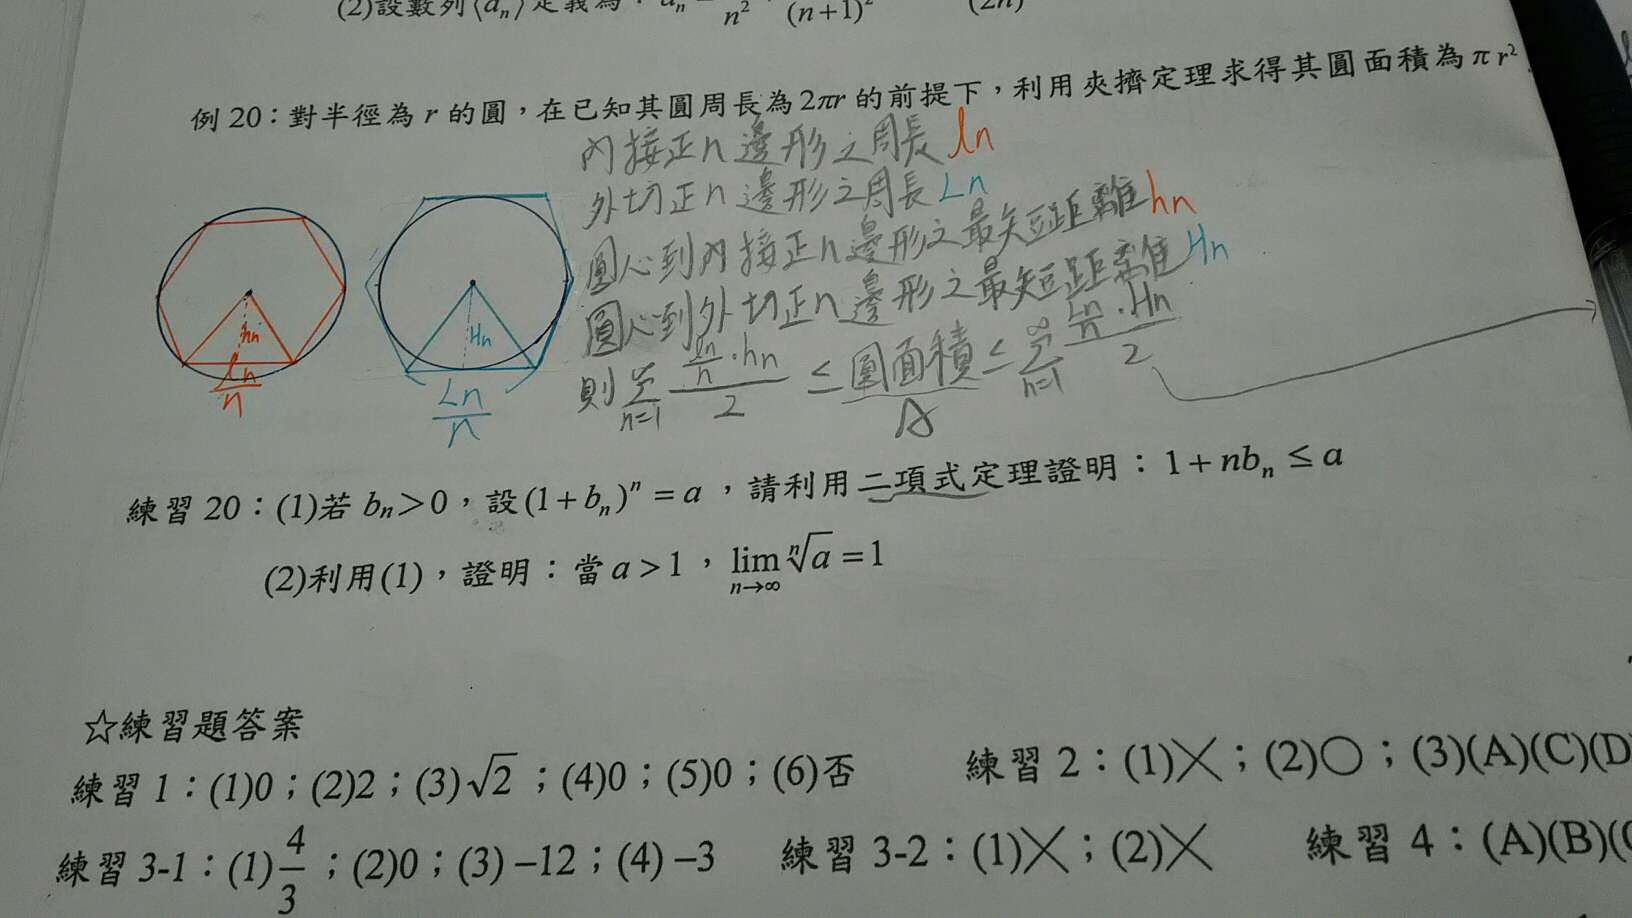 (2)設數列⟨aₙ⟩定義為：aₙ = n² (n+1)² (2n)
例 20：對半徑為 r 的圓，在已知其圓周長為 2πr 的前提下，利用夾擠定理求得其圓面積為 πr²
內接正n邊形之周長 ln
外切正n邊形之周長 Ln
圓心到內接正n邊形之最短距離 hn
圓心到外切正n邊形之最短距離 Hn
則 ∑_{n=1}^{∞} (ln/n · hn)/2 ≤ 圓面積 ≤ ∑_{n=1}^{∞} (Ln/n · Hn)/2
A
hn
Hn
ln/n
Ln/n
練習 20：(1)若 bₙ＞0，設 (1+bₙ)ⁿ = a，請利用二項式定理證明：1+nbₙ ≤ a
(2)利用(1)，證明：當 a > 1，lim_{n→∞} ⁿ√a = 1
☆練習題答案
練習 1：(1)0；(2)2；(3)√2；(4)0；(5)0；(6)否 練習 2：(1)╳；(2)○；(3)(A)(C)(D)
練習 3-1：(1)4/3；(2)0；(3)–12；(4)–3 練習 3-2：(1)╳；(2)╳ 練習 4：(A)(B)(